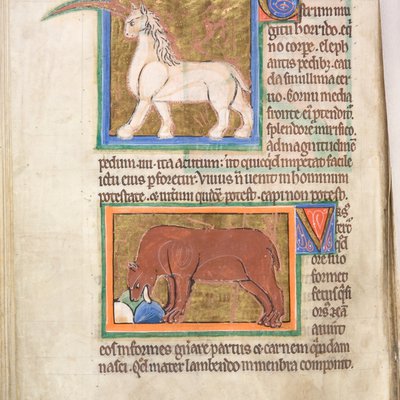 strum mu
gitu horrido. eq
no corpe. eleph
antis pedib; cau
da simillima cer
uo. Cornu media
fronte eı' ptendit.
splendore mirifico.
Ad magnitudinem
pedum. iiii. ita acutum: ut quicqid impetat facile
ictu eius pforetur. Viuus n̄ uenit in hominum
potestate. & interimi quidē potest. capi non potest.
sus
fert
qd
ore suo
formet
fetus. q̄si
orsus. nā
aiunt
eos informes gn̄are partus & carnem quandam
nasci. qd mater lambendo in menbra componit.